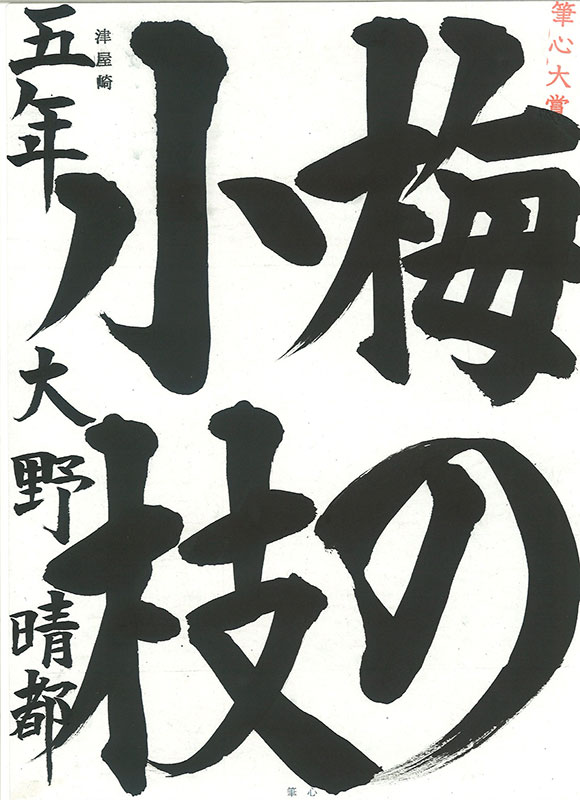 筆心大賞
梅の
小枝
津屋崎
五年 大野晴都
筆心